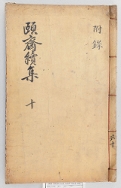 附錄
頤齋續集
十